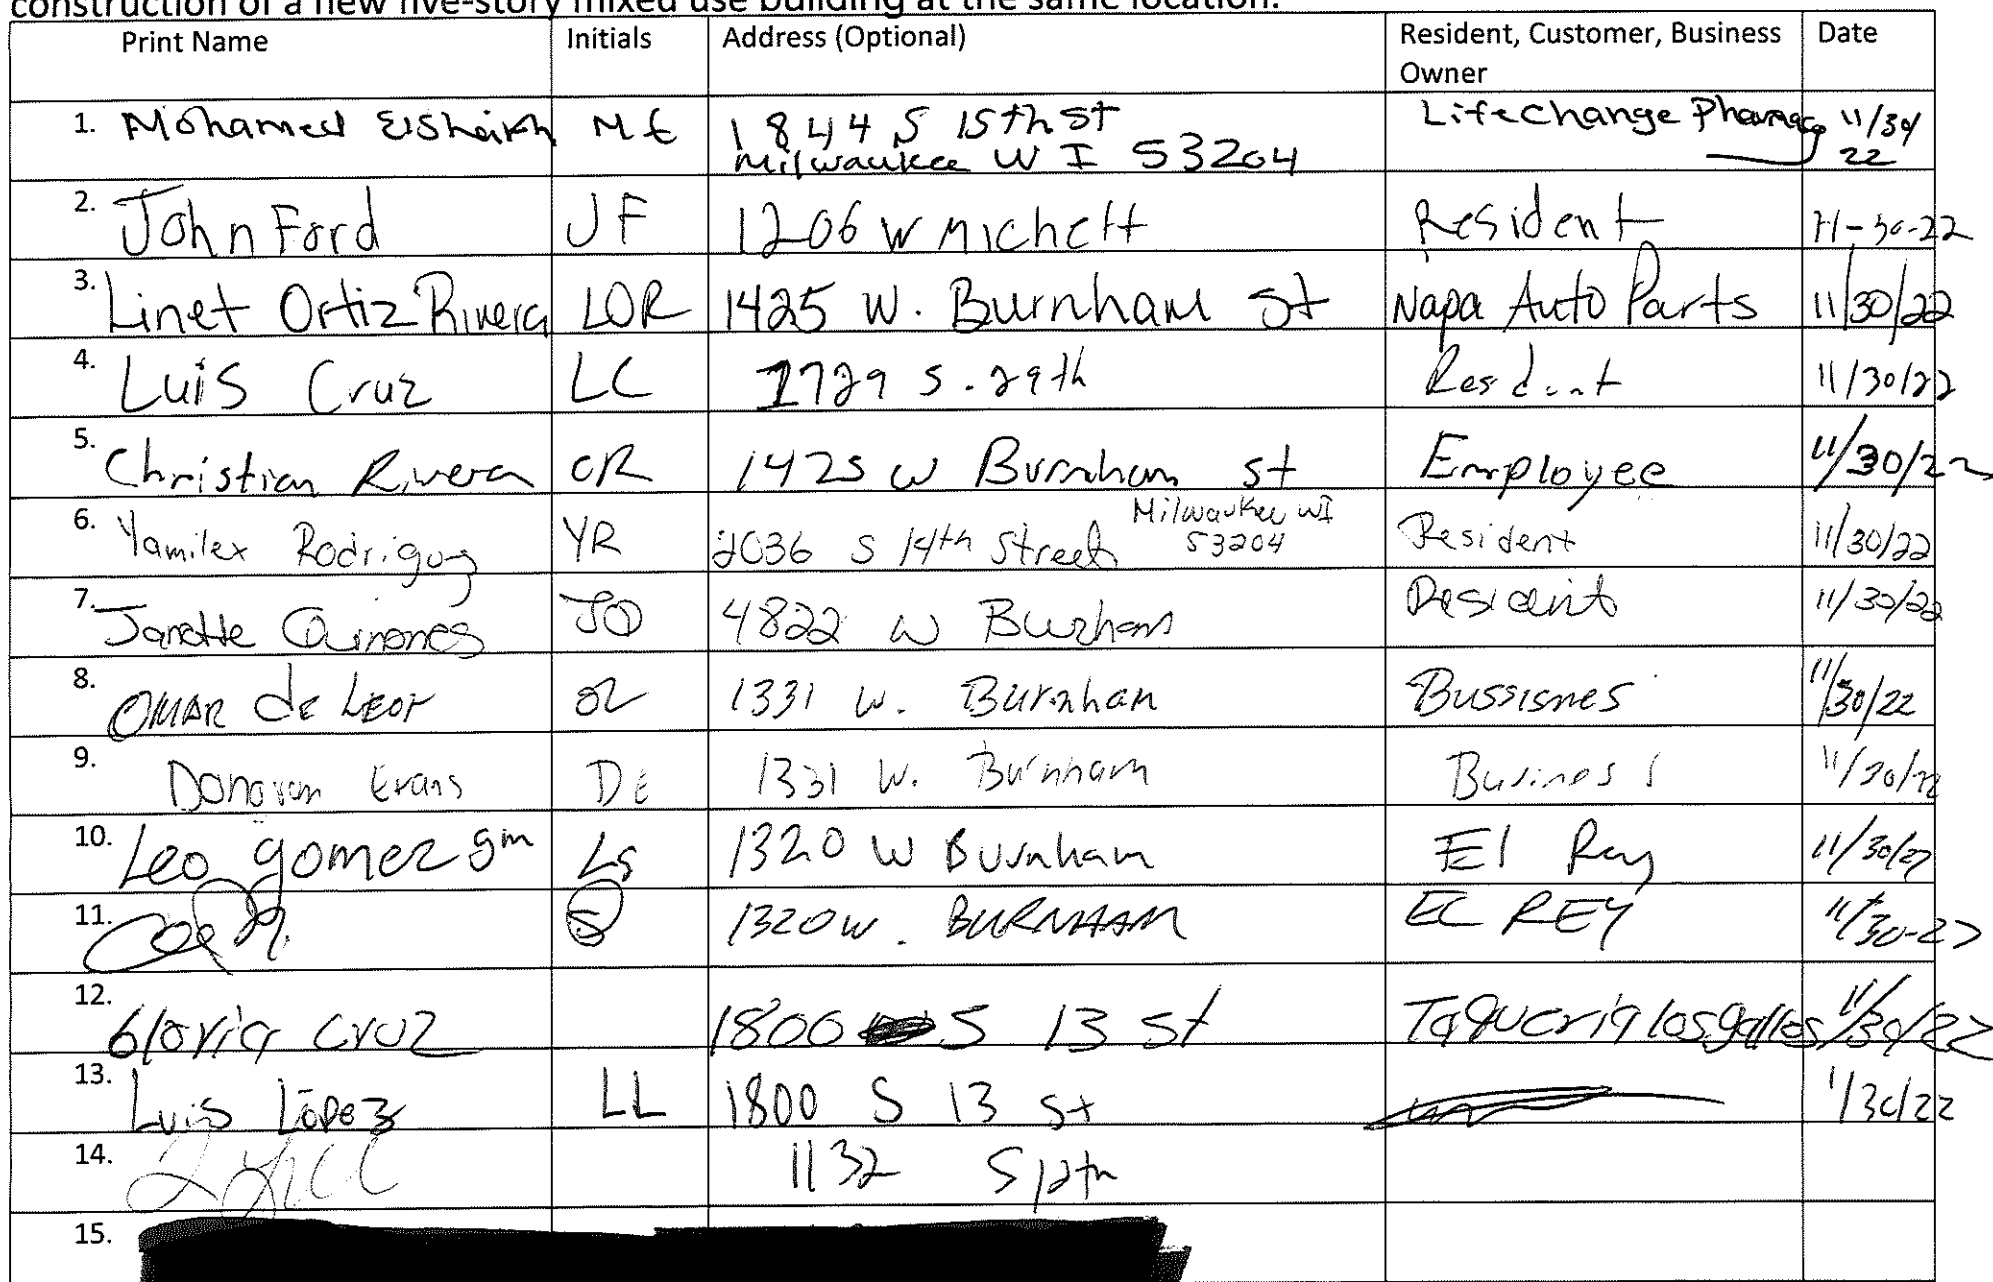 construction of a new five-story mixed use building at the same location.
Print Name Initials Address (Optional) Resident, Customer, Business Owner Date
1. Mohamed Elsheikh ME 1844 S 15th St Milwaukee WI 53204 LifeChange Pharmacy 11/30/22
2. John Ford JF 1206 W 11-30-22 Resident
3. Linet Ortiz Rivera LOR 1425 W. Burnham St Napa Auto Parts 11/30/22
4. Luis Cruz LC 1729 S. 29th Resident 11/30/22
5. Christian Rivera CR 1425 W Burnham St Employee 11/30/22
6. Yamilex Rodriguez YR 2036 S 14th Street Milwaukee WI 53204 Resident 11/30/22
7. Janette Quinones JQ 4822 W Burnham Resident 11/30/22
8. OMAR de LEON OL 1331 W. Burnham Bussisnes 11/30/22
9. Donovan Evans DE 1331 W. Burnham Business 11/30/22
10. Leo gomez gm LG 1320 W Burnham El Rey 11/30/22
11. 1320 W. BURNHAM EL REY 11/30-22
12. Gloria Cruz 1800 S 13 St Taqueria los gallos 11/30/22
13. Luis Lopez LL 1800 S 13 St 1/30/22
14. 1132 S
15.